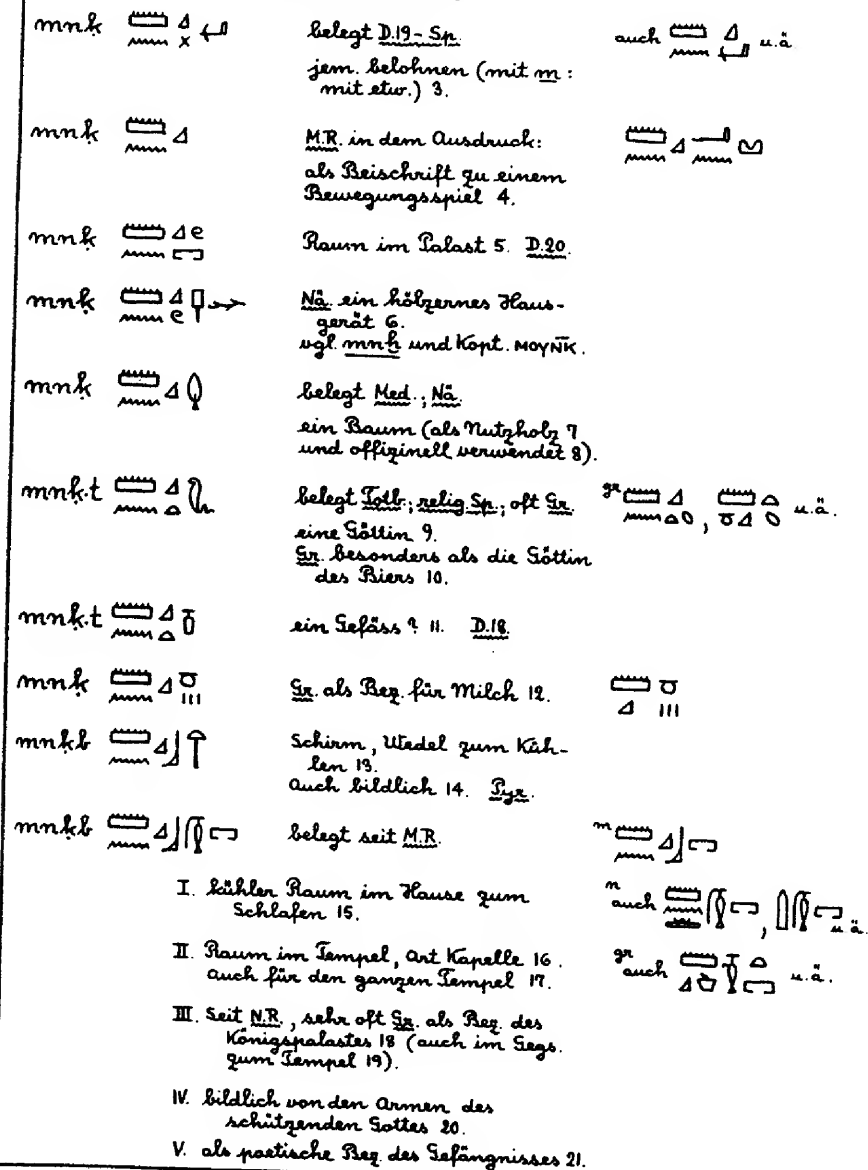 mnḳ 𓏠𓈖𓈎𓏴𓂡 belegt D.19-Sp. auch 𓏠𓈖𓈎𓂡 u.ä
jem. belohnen (mit m :
mit etw.) 3.
mnḳ 𓏠𓈖𓈎 M.R. in dem Ausdruck:
als Beischrift zu einem
Bewegungsspiel 4.
mnḳ 𓏠𓈖𓈎𓏲𓉐 Raum im Palast 5. D.20.
mnḳ Nä. ein hölzernes Haus-
gerät 6.
vgl. mnḫ und Kopt. ⲙⲟⲩⲛ̅ⲕ̅.
mnḳ 𓏠𓈖𓈎 belegt Med.; Nä.
ein Baum (als Nutzholz 7
und offizinell verwendet 8).
mnḳ.t 𓏠𓈖𓈎𓏏 belegt Totb.; relig. Sp.; oft Gr. gr , u.ä.
eine Göttin 9.
Gr. besonders als die Göttin
des Biers 10.
mnḳ.t 𓏠𓈖𓈎𓏏 ein Gefäss ? 11. D.18.
mnḳ 𓏠𓈖𓈎𓏌𓏥 Gr. als Bez. für Milch 12. 𓏠𓈎𓏌𓏥
mnḳb 𓏠𓈖𓈎𓃀 Schirm, Wedel zum Küh-
len 13.
auch bildlich 14. Pyr.
mnḳb 𓏠𓈖𓈎𓃀𓉐 belegt seit M.R. m 𓏠𓈖𓈎𓃀𓉐
I. kühler Raum im Hause zum
Schlafen 15. n auch , u.ä.
II. Raum im Tempel, Art Kapelle 16.
auch für den ganzen Tempel 17. gr auch u.ä.
III. Seit N.R., sehr oft Gr. als Bez. des
Königspalastes 18 (auch im Gegs.
zum Tempel 19).
IV. bildlich von den Armen des
schützenden Gottes 20.
V. als poetische Bez. des Gefängnisses 21.